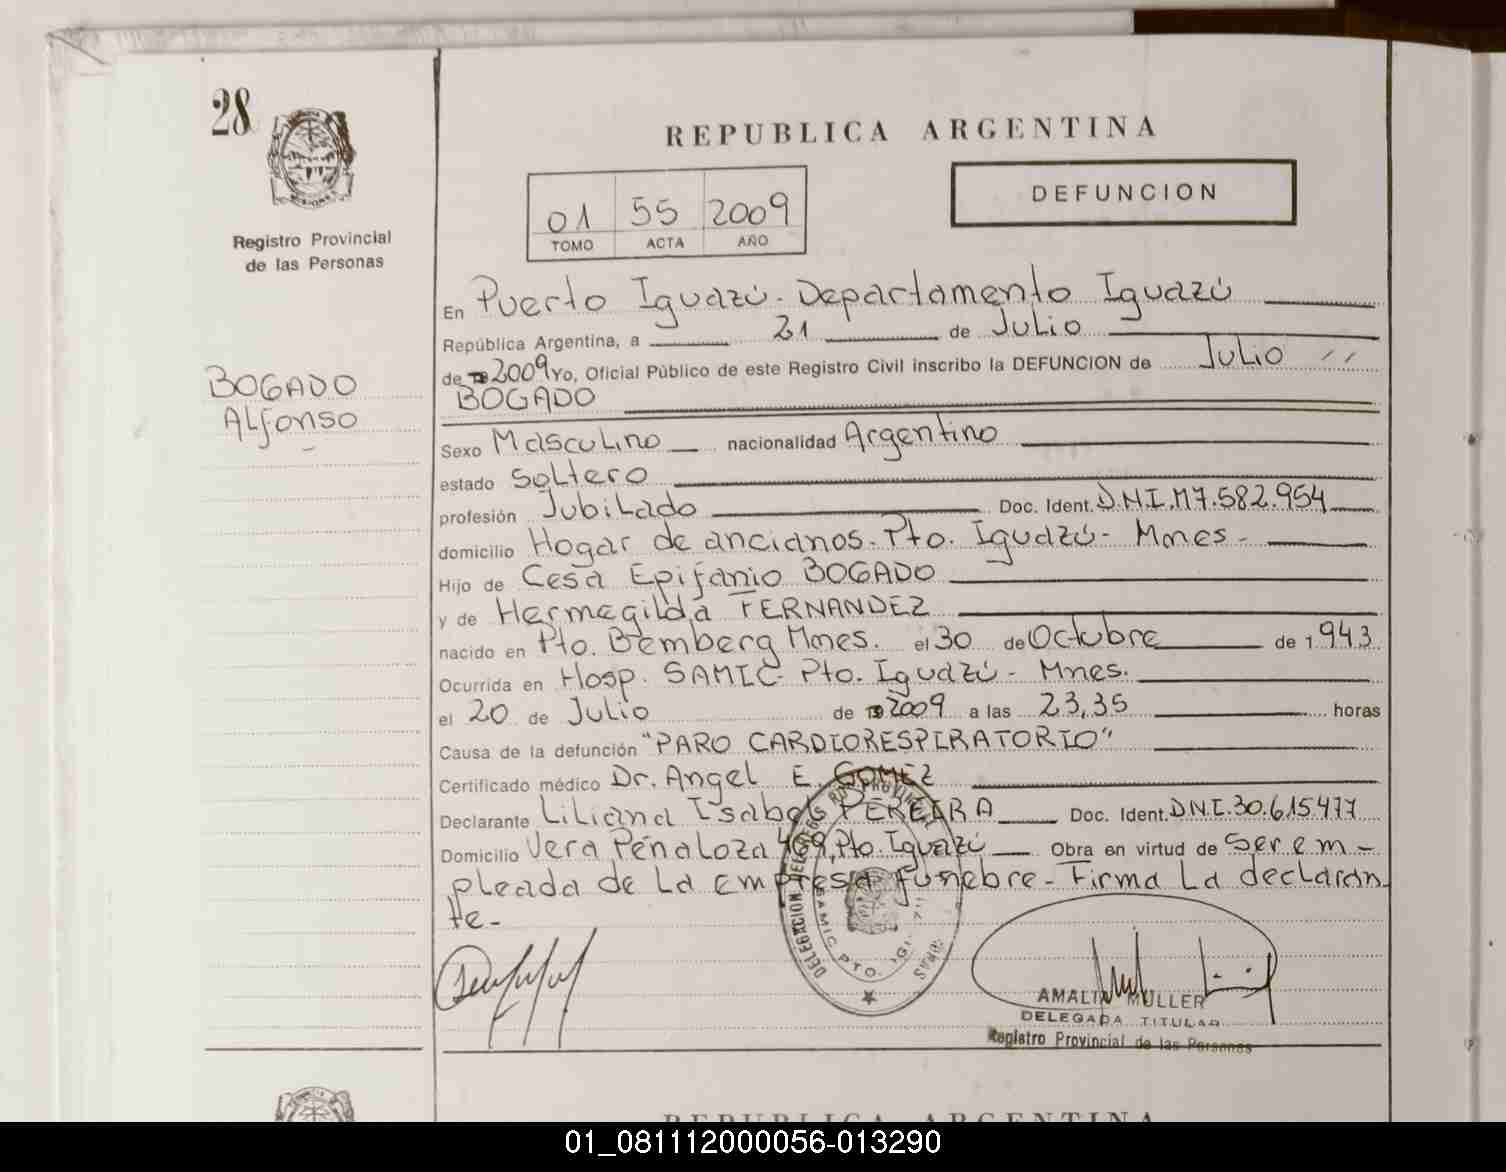 28
Registro Provincial
de las Personas
BOGADO
Alfonso
REPUBLICA ARGENTINA
01 55 2009
TOMO ACTA AÑO
DEFUNCION
En Puerto Iguazú. Departamento Iguazú
República Argentina, a 21 de Julio
de 2009 Yo, Oficial Público de este Registro Civil inscribo la DEFUNCION de Julio //
BOGADO
Sexo Masculino nacionalidad Argentino
estado Soltero
profesión Jubilado Doc. Ident. D.N.I. M7.582.954
domicilio Hogar de ancianos. Pto. Iguazú - Mnes -
Hijo de Cesa Epifanio BOGADO
y de Hermegilda FERNANDEZ
nacido en Pto. Bemberg Mnes. el 30 de Octubre de 1.943
Ocurrida en Hosp. SAMIC - Pto. Iguazú - Mnes.
el 20 de Julio de 2009 a las 23,35 horas
Causa de la defunción "PARO CARDIORESPIRATORIO"
Certificado médico Dr. Angel E. GOMEZ
Declarante Liliana Isabel PEREIRA Doc. Ident. D.N.I. 30.615.477
Domicilio Vera Peñaloza 469, Pto. Iguazú Obra en virtud de Ser em-
pleada de la empresa funebre - Firma La declaran-
te -
DELEGACION SAMIC PTO.
AMALIA MULLER
DELEGADA TITULAR
Registro Provincial de las Personas
REPUBLICA ARGENTINA
01_081112000056-013290